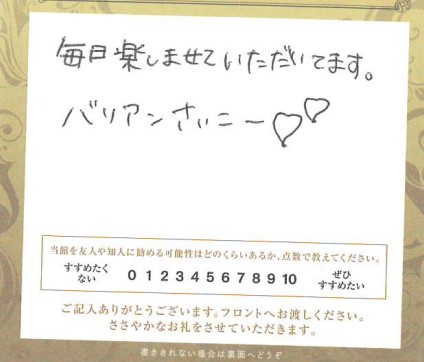 毎日楽しませていただいてます。
バリアンさいこー♡♡
当館を友人や知人に勧める可能性はどのくらいあるか、点数で教えてください。
すすめたく
ない
0 1 2 3 4 5 6 7 8 9 10
ぜひ
すすめたい
ご記入ありがとうございます。フロントへお渡しください。
ささやかなお礼をさせていただきます。
書ききれない場合は裏面へどうぞ